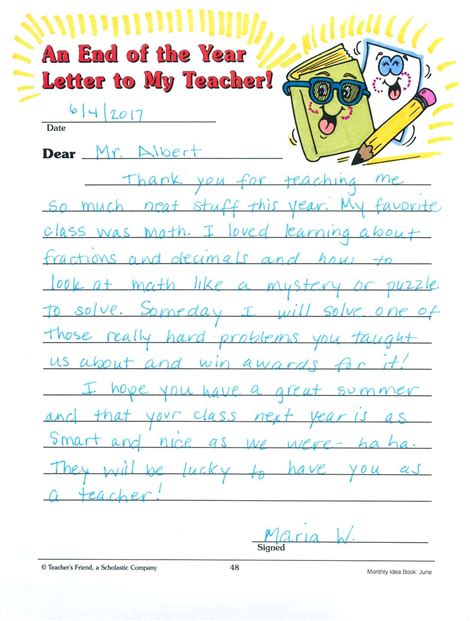 An End of the Year
Letter to My Teacher!
6/4/2017
Date
Dear Mr. Albert
Thank you for teaching me
so much neat stuff this year. My favorite
class was math. I loved learning about
fractions and decimals and how to
look at math like a mystery or puzzle
to solve. Someday I will solve one of
those really hard problems you taught
us about and win awards for it!
I hope you have a great summer
and that your class next year is as
smart and nice as we were- ha ha.
They will be lucky to have you as
a teacher!
Maria W.
Signed
© Teacher's Friend, a Scholastic Company
48
Monthly Idea Book: June